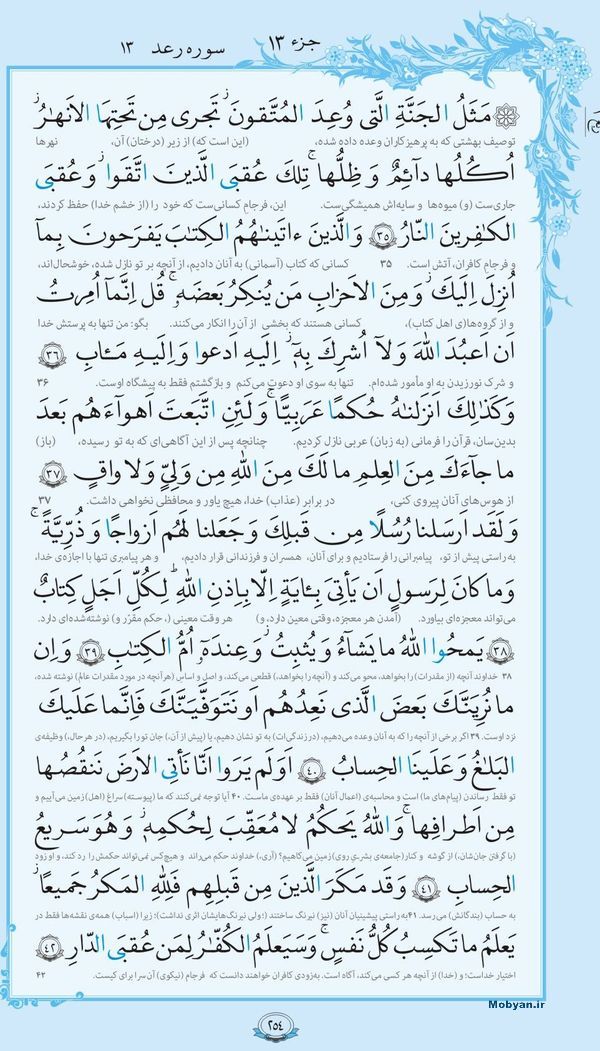 جزء ۱۳
سوره رعد ۱۳
مَثَلُ الجَنَّةِ الَّتی وُعِدَ المُتَّقونَ ۖ تَجری مِن تَحتِهَا الاَنهٰرُ ۖ
توصیف بهشتی که به پرهیزکاران وعده داده شده، (این است که) از زیر (درختان) آن، نهرها
اُکُلُها دآئِمٌ وَ ظِلُّها ۚ تِلکَ عُقبَی الَّذینَ اتَّقَوا ۖ وَ عُقبَی
جاری‌ست (و) میوه‌ها و سایه‌اش همیشگی‌ست. این، فرجامِ کسانی‌ست که خود را (از خشم خدا) حفظ کردند،
الکٰفِرینَ النّارُ ﴿۳۵﴾ وَالَّذینَ ءاتَینٰهُمُ الکِتٰبَ یَفرَحونَ بِمآ
و فرجامِ کافران، آتش است. ۳۵ کسانی که کتاب (آسمانی) به آنان دادیم، از آنچه بر تو نازل شده، خوشحال‌اند،
اُنزِلَ اِلَیکَ ۖ وَ مِنَ الاَحزابِ مَن یُنکِرُ بَعضَه ۚ قُل اِنَّمآ اُمِرتُ
و از گروه‌ها(ی اهل کتاب)، کسانی هستند که بخشی از آن را انکار می‌کنند. بگو: من تنها به پرستش خدا
اَن اَعبُدَ اللهَ وَلآ اُشرِکَ بِه ۚ اِلَیهِ اَدعوا وَ اِلَیهِ مَـٔابِ ﴿۳۶﴾
و شرک نورزیدن به او مأمور شده‌ام. تنها به سوی او دعوت می‌کنم و بازگشتم فقط به پیشگاه اوست. ۳۶
وَ کَذٰلِکَ اَنزَلنٰهُ حُکمًا عَرَبِیًّا ۚ وَلَئِنِ اتَّبَعتَ اَهوآءَهُم بَعدَ
بدین‌سان، قرآن را فرمانی (به زبان) عربی نازل کردیم. چنانچه پس از این آگاهی‌ای که به تو رسیده، (باز)
ما جآءَکَ مِنَ العِلمِ ما لَکَ مِنَ اللهِ مِن وَلِیٍّ وَلا واقٍ ﴿۳۷﴾
از هوس‌های آنان پیروی کنی، در برابر (عذاب) خدا، هیچ یاور و محافظی نخواهی داشت. ۳۷
وَ لَقَد اَرسَلنا رُسُلًا مِن قَبلِکَ وَ جَعَلنا لَهُم اَزواجًا وَ ذُرِّیَّةً ۚ
به راستی پیش از تو، پیامبرانی را فرستادیم و برای آنان، همسران و فرزندانی قرار دادیم، و هر پیامبری تنها با اجازه‌ی خدا،
وَما کانَ لِرَسولٍ اَن یَأتِیَ بِـٔایَةٍ اِلّا بِاِذنِ اللهِ ۗ لِکُلِّ اَجَلٍ کِتابٌ
می‌تواند معجزه‌ای بیاورد. (آمدن هر معجزه، وقتی معین دارد، و) هر وقت معینی (، حکم مقرّر و) نوشته‌شده‌ای دارد.
﴿۳۸﴾ یَمحُوا اللهُ ما یَشآءُ وَ یُثبِتُ ۖ وَ عِندَهٓ اُمُّ الکِتٰبِ ﴿۳۹﴾ وَ اِن
۳۸ خداوند آنچه (از مقدرات) را بخواهد، محو می‌کند و (آنچه را بخواهد،) قطعی می‌کند، و اصل و اساس (هر آنچه در مورد مقدرات عالم) نوشته شده،
ما نُرِیَنَّکَ بَعضَ الَّذی نَعِدُهُم اَو نَتَوَفَّیَنَّکَ فَاِنَّما عَلَیکَ
نزد اوست. ۳۹ اگر برخی از آنچه را که به آنان وعده می‌دهیم، (در زندگی‌ات) به تو نشان دهیم، یا (پیش از آن،) جان تو را بگیریم، (در هر حال،) وظیفه‌ی
البَلٰغُ وَ عَلَینَا الحِسابُ ﴿۴۰﴾ اَوَلَم یَرَوا اَنّا نَأتِی الاَرضَ نَنقُصُها
تو فقط رساندن (پیام‌های ما) است و محاسبه‌ی (اعمال آنان) فقط بر عهده‌ی ماست. ۴۰ آیا توجه نمی‌کنند که ما (پیوسته) سراغ (اهل) زمین می‌آییم و
مِن اَطرافِها ۚ وَاللهُ یَحکُمُ لا مُعَقِّبَ لِحُکمِه ۚ وَ هُوَ سَریعُ
(با گرفتن جان‌شان،) از گوشه و کنار (جامعه‌ی بشری روی) زمین می‌کاهیم؟ (آری،) خداوند حکم می‌راند و هیچ‌کس نمی‌تواند حکمش را رد کند، و او زود
الحِسابِ ﴿۴۱﴾ وَ قَد مَکَرَ الَّذینَ مِن قَبلِهِم فَلِلّهِ المَکرُ جَمیعًا ۖ
به حساب (بندگانش) می‌رسد. ۴۱ به راستی پیشینیان آنان (نیز) نیرنگ ساختند (؛ ولی نیرنگ‌هایشان اثری نداشت)؛ زیرا (اسباب) همه‌ی نقشه‌ها فقط در
یَعلَمُ ما تَکسِبُ کُلُّ نَفسٍ ۗ وَ سَیَعلَمُ الکُفّٰرُ لِمَن عُقبَی الدّارِ ﴿۴۲﴾
اختیار خداست؛ و (خدا) از آنچه هر کسی می‌کند، آگاه است. به‌زودی کافران خواهند دانست که فرجامِ (نیکوی) آن سرا برای کیست. ۴۲
۲۵۴
Mobyan.ir